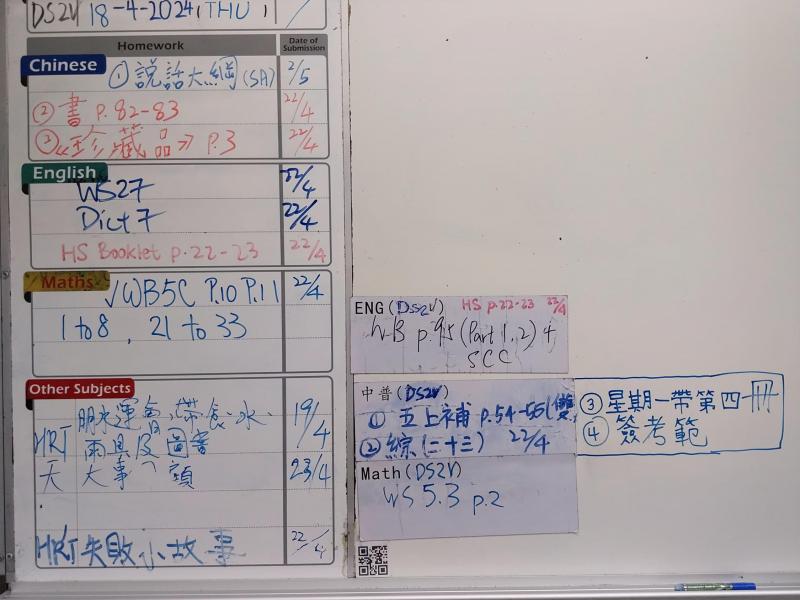 DS2V 18-4-2024 (THU)
Homework Date of Submission
Chinese ① 說話大綱 (SA) 2/5
② 書 P.82-83 22/4
③ 《珍藏品》 P.3 22/4
English
WS27 22/4
Dict 7 22/4
HS Booklet p.22-23 22/4
Maths √WB5C P.10 P.11 22/4
1 to 8 , 21 to 33
Other Subjects
HRT 帶 水 19/4
雨具及圖書
天 大事 23/4
HRT 失敗小故事 22/4
ENG (DS2V) HS p.22-23 22/4
WB p.95 (Part 1, 2) 4
SCC
中普 (DS2V)
① 五上補 P.54-55
② 綜 (二十三) 22/4
③ 星期一帶第四冊
④ 簽考範
Math (DS2V)
WS 5.3 p.2